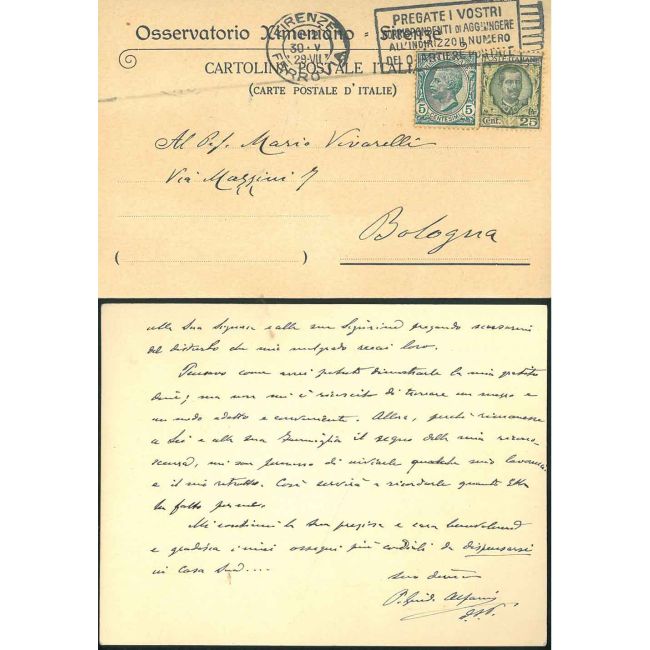 Osservatorio Ximeniano - Firenze
FIRENZE
30 · V
29 · VII
FERROVIA
PREGATE I VOSTRI
CORRISPONDENTI DI AGGIUNGERE
ALL'INDIRIZZO IL NUMERO
DEL QUARTIERE POSTALE
CARTOLINA POSTALE ITALIANA
(CARTE POSTALE D'ITALIE)
5 CENTESIMI 5
POSTE ITALIANE
Cent. 25
Al P. Mario Vivarelli
Via Mazzini 7
Bologna
( )
alla Sua Signora e alla sua Signorina pregando scusarmi
del disturbo che mio malgrado recai loro.
Pensavo come avrei potuto dimostrarle la mia gratitu
dine; ma non mi è riuscito di trovare un mezzo e
un modo adatto e conveniente. Allora, perchè rimanesse
a Lei e alla sua Famiglia il segno della mia ricono-
scenza, mi son permesso di inviarle qualche mio lavoruccio
e il mio ritratto. Così servirà a ricordarle quanto Ella
ha fatto per me.
Mi continui la sua preziosa e cara benevolenza
e gradisca i miei ossequi più cordiali da dispensarsi
in casa Sua....
suo dev.mo
P. Guido Alfani
d.S.P.